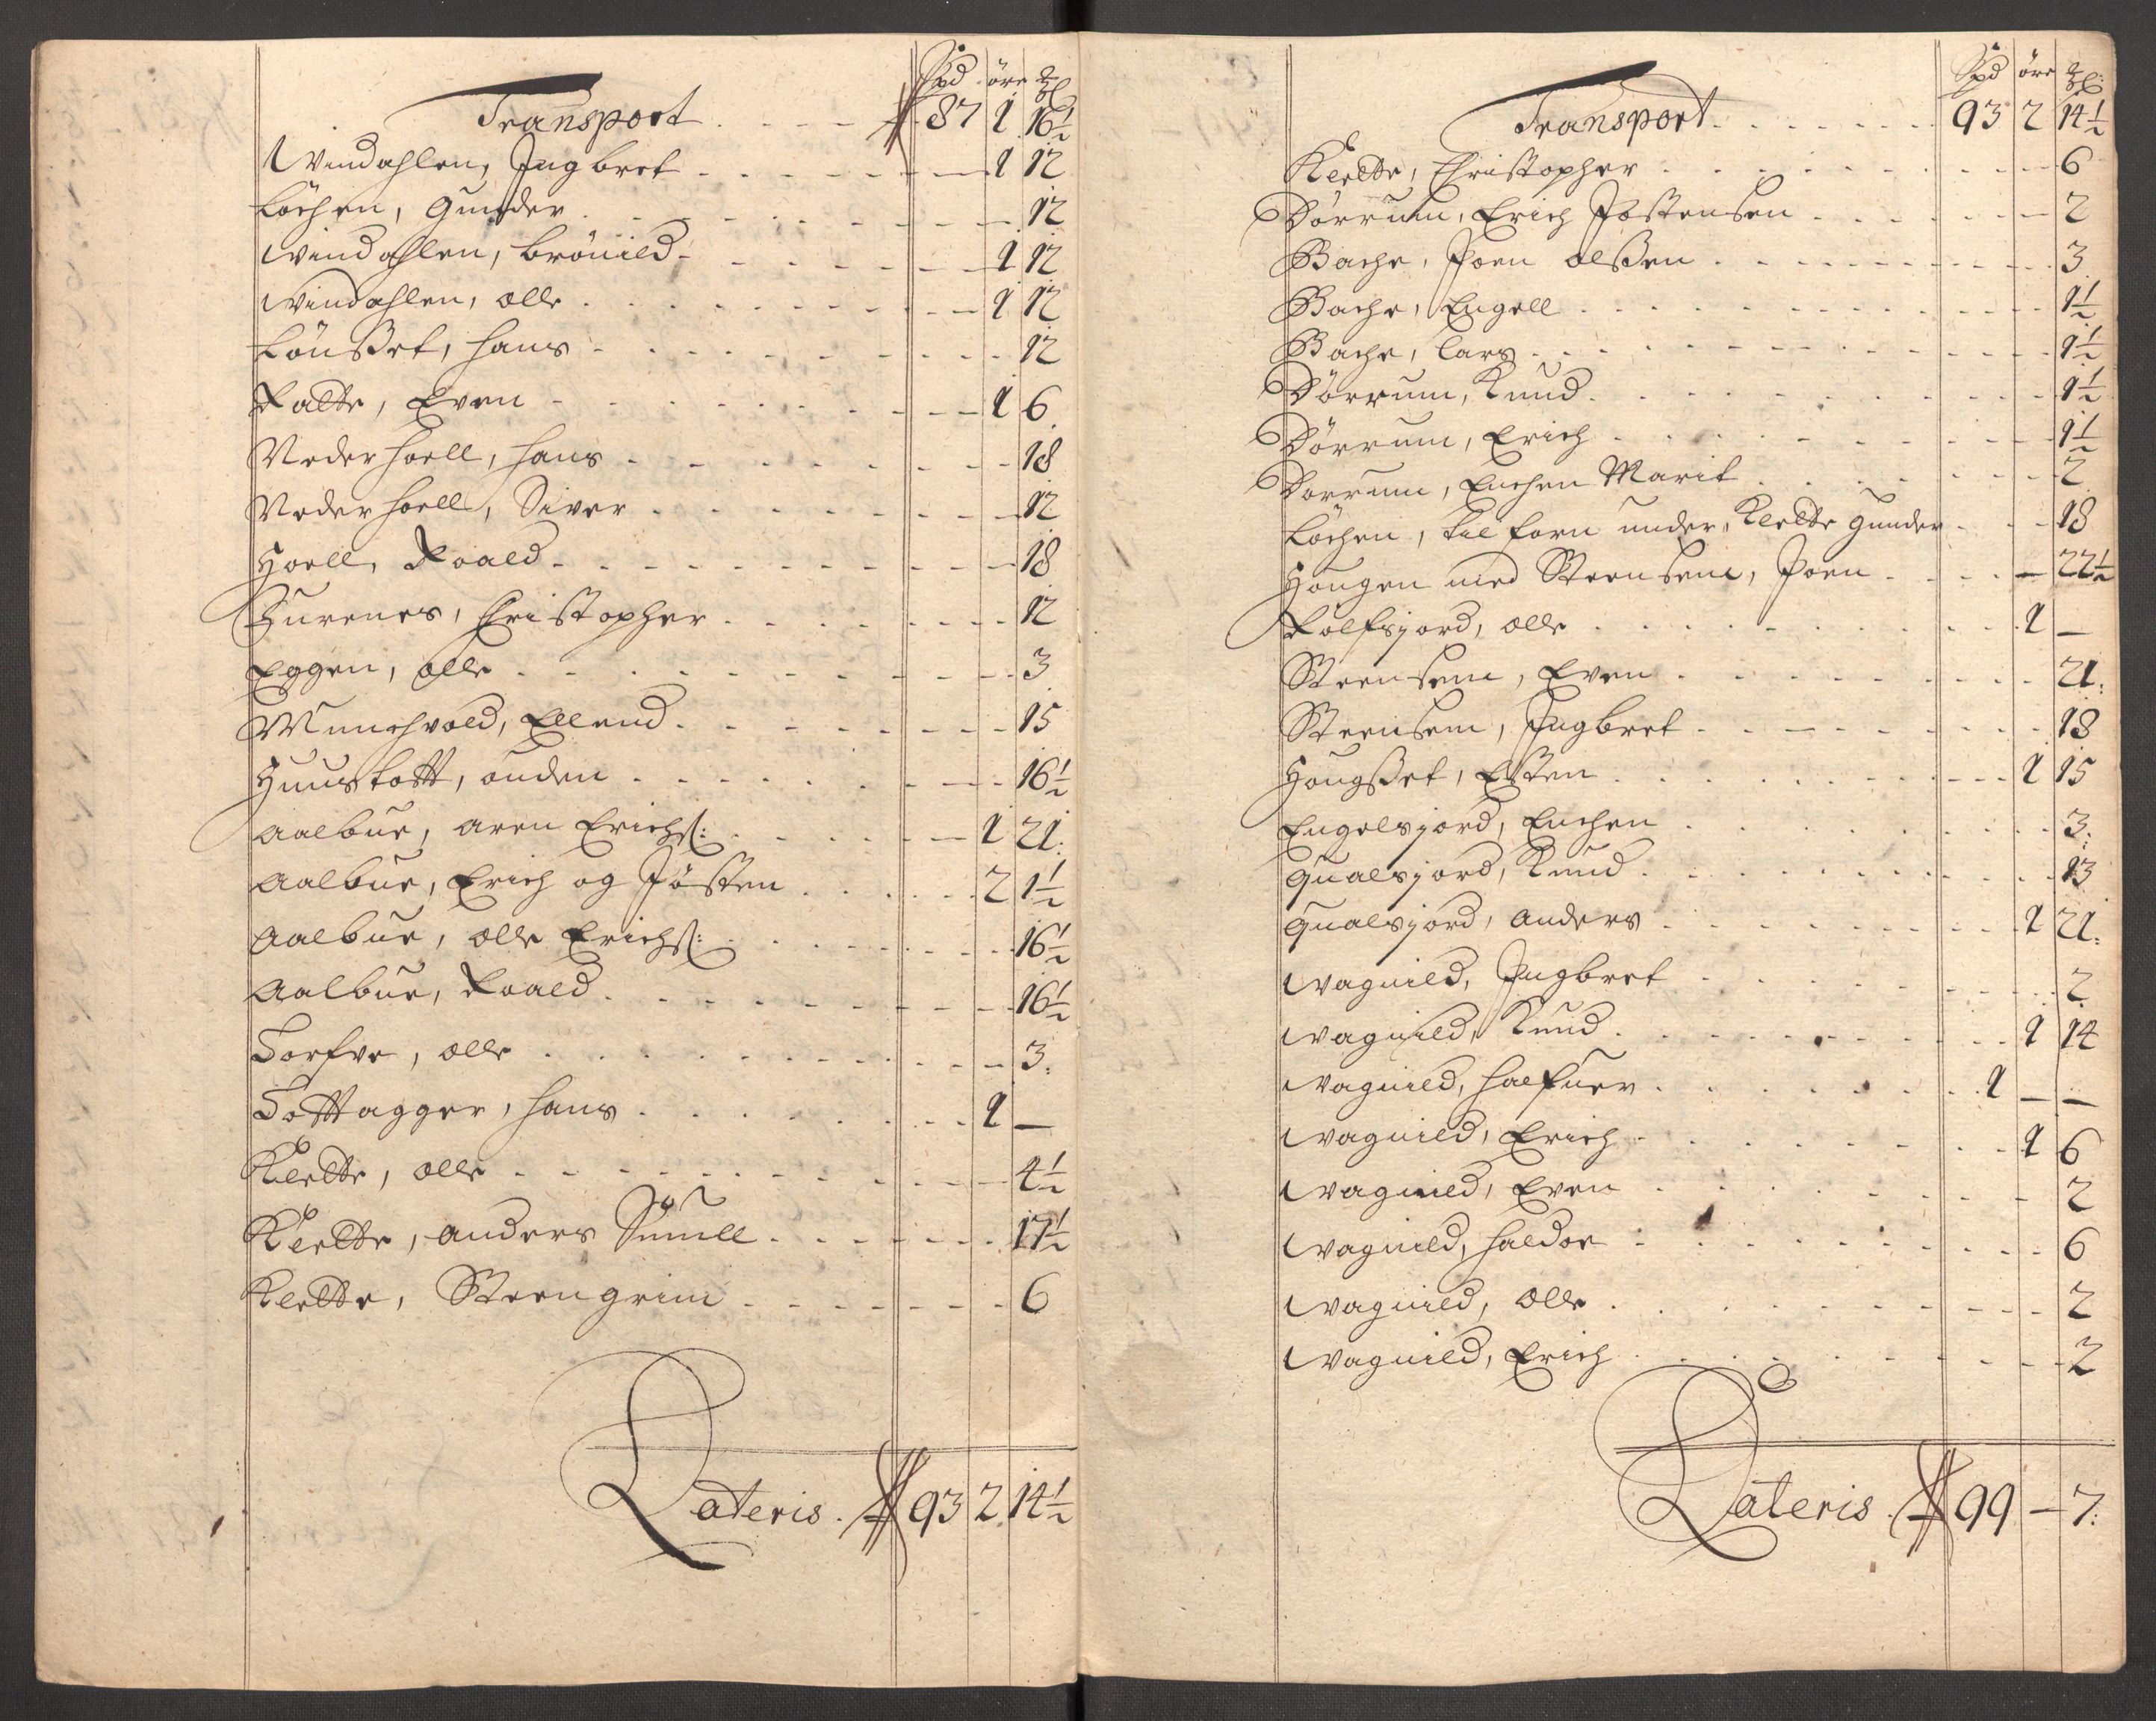 Spd öre
Transport 87 1 16½
Windahlen, Ingbret 1 12
Löchen, Gunder 12
Windahlen, Brönild 1 12
Windahlen, Olle 1 12
Lönsset, Hans 12
Ratte, Even 1 6
Nederhoell, Hans 18
Nederhoell, Siver 12
Hoell, Roald 18
Furenes, Christopher 12
Eggen, Olle 3
Munchvold, Ellend 15
Huustoft, Ouden 16½
Aalbue, Aren Erichs: 1 21:
Aalbue, Erich og Jösten 2 1½
Aalbue, Olle Erichs: 16½
Aalbue, Roald 16½
Torfve, Olle 3:
Tottagger, Hans 1 —
Kleette, Olle 4½
Kleette, Anders Snuell 17½
Kleette, Steengrim 6
Lateris 93 2 14½
Spd öre
Transport 93 2 14½
Kleette, Christopher 6
Dörrum, Erich Jöstensen 2
Bache, Joen Olssen 3
Bache, Engell 1½
Bache, Lars 1½
Dörrum, Knud 1½
Dörrum, Erich 1½
Dörrum, Enchen Marit 2
Löchen, til forn under Kleette Gunder 18
Hougen med Steensem, Joen — 22½
Rolfsjord, Olle 1 —
Steensem, Even 21:
Steensem, Ingbret 18
Hougsset, Esten 1 15
Engelsjord, Enchen 3:
Qualsjord, Knud 13
Qualsjord, Anders 1 21:
Wagnild, Ingbret 2
Wagnild, Knud 1 14
Wagnild, Halfuer 1 — —
Wagnild, Erich 1 6
Wagnild, Even 2
Wagnild, Haldor 6
Wagnild, Olle 2
Wagnild, Erich 2
Lateris 99 — 7: